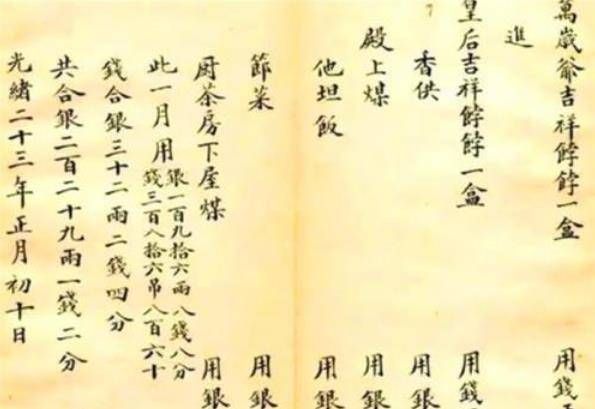 萬歲爺吉祥餑餑一盒 用錢
進
皇后吉祥餑餑一盒 用錢
香供 用銀
殿上煤 用銀
他坦飯 用銀
節菜 用銀
厨茶房下屋煤 用銀
此一月用銀一百九拾六兩八錢八分
錢三百八拾六吊八百六十
錢合銀三十二兩二錢四分
共合銀二百二十九兩一錢二分
光緒二十三年正月初十日